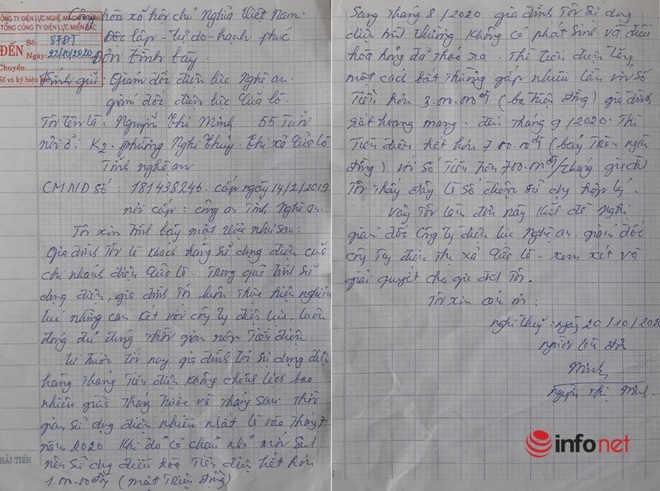 CÔNG TY ĐIỆN LỰC NGHỆ AN
TỔNG CÔNG TY ĐIỆN LỰC MIỀN BẮC
ĐẾN
Số: 8787
Ngày: 22/10/2020
Chuyển:
Số và ký hiệu
Cộng hòa xã hội chủ nghĩa Việt Nam
Độc lập - Tự do - hạnh phúc
Đơn trình bày
Kính gửi Giám đốc điện lực Nghệ an
giám đốc điện lực Cửa lò
Tôi tên là: Nguyễn Thị Minh 55 Tuổi
nơi ở: K2 - phường Nghi Thủy - Thị xã Cửa lò
Tỉnh nghệ an
CMND số: 181438246. cấp ngày 14/2/2019
nơi cấp: công an Tỉnh Nghệ an.
Tôi xin trình bày một việc như sau:
Gia đình Tôi là khách hàng sử dụng điện của
chi nhánh điện Cửa lò - Trong quá trình sử
dụng điện, gia đình tôi luôn thực hiện nghiêm
túc những cam kết với công ty điện lực, luôn
đóng đúng thời gian nộp tiền điện
Từ trước tới nay gia đình tôi sử dụng điện
hàng tháng tiền điện không chênh lệch bao
nhiêu giữa tháng trước và tháng sau thời
gian sử dụng điện nhiều nhất là vào tháng 7
năm 2020 khi đó có cháu nhỏ mới sinh
nên sử dụng điều hòa tiền điện hết hơn
1.000.000đ (một triệu đồng)
HẢI TIẾN
Sang tháng 8/2020 gia đình tôi sử dụng
điện bình thường không có phát sinh và điều
hòa hỏng đã tháo ra. Thì tiền điện tăng
một cách bất thường gấp nhiều lần với số
tiền hơn 3.000.000đ (ba triệu đồng) gia đình
rất hoang mang. đến tháng 9/2020. Thì
tiền điện hết hơn 700.000đ (bảy trăm ngàn
đồng) với số tiền hơn 700.000đ/tháng gia đình
Tôi thấy đây là số điện sử dụng hợp lý.
Vậy tôi làm đơn này kính đề nghị
giám đốc công ty điện lực Nghệ an, giám đốc
công ty điện thị xã Cửa lò - xem xét và
giải quyết cho gia đình tôi.
Tôi xin cảm ơn:
Nghi Thủy: ngày 20/10/2020
người làm đơn
Minh
Nguyễn Thị Minh.
infonet